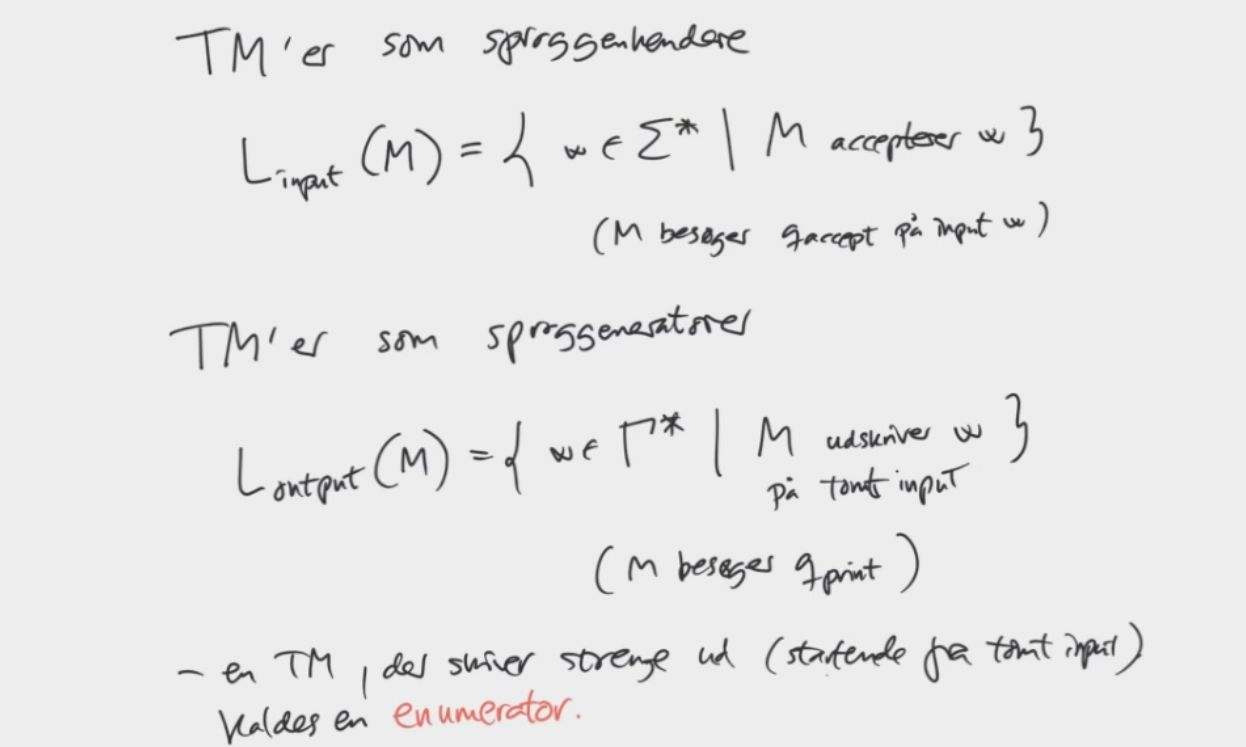 TM'er som sproggenkendere
L_input (M) = { w ∈ Σ* | M accepterer w }
(M besøger q_accept på input w)
TM'er som sproggeneratorer
L_output (M) = { w ∈ Γ* | M udskriver w }
på tomt input
(M besøger q_print)
– en TM, der skriver strenge ud (startende fra tomt input)
kaldes en enumerator.